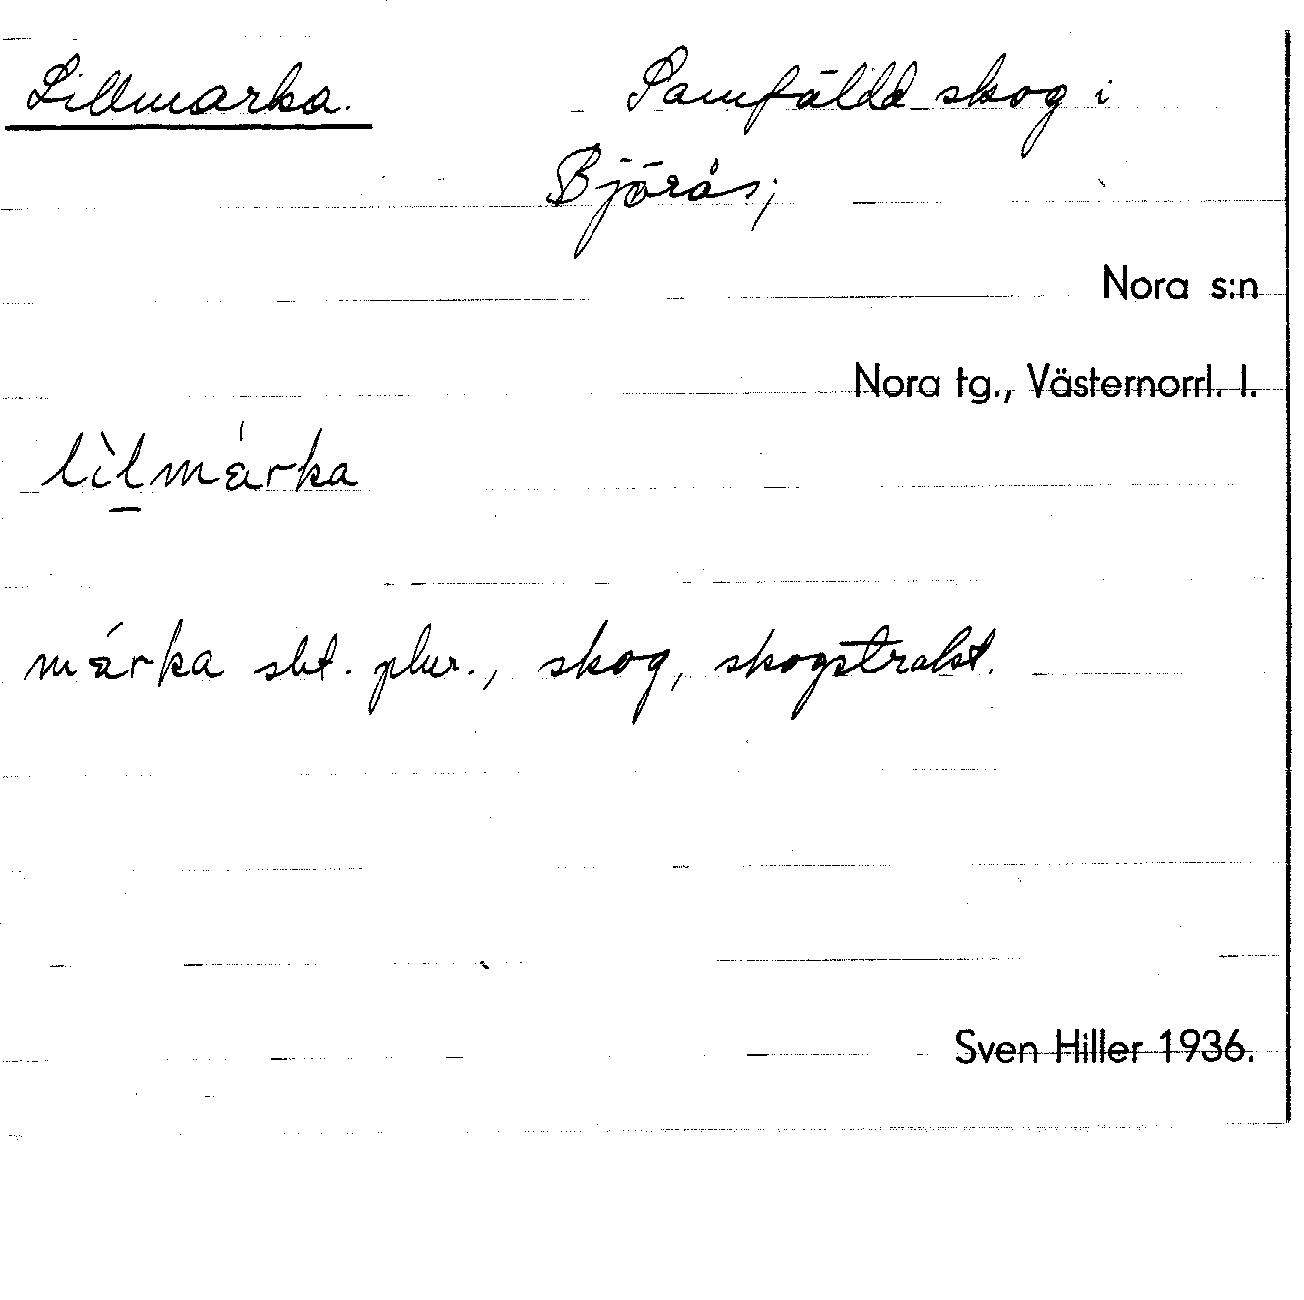 Lillmarka. Samfälld skog i
Björås;
Nora s:n
Nora tg., Västernorrl. l.
lìlmárka
márka sbt. plur., skog, skogstrakt.
Sven Hiller 1936.